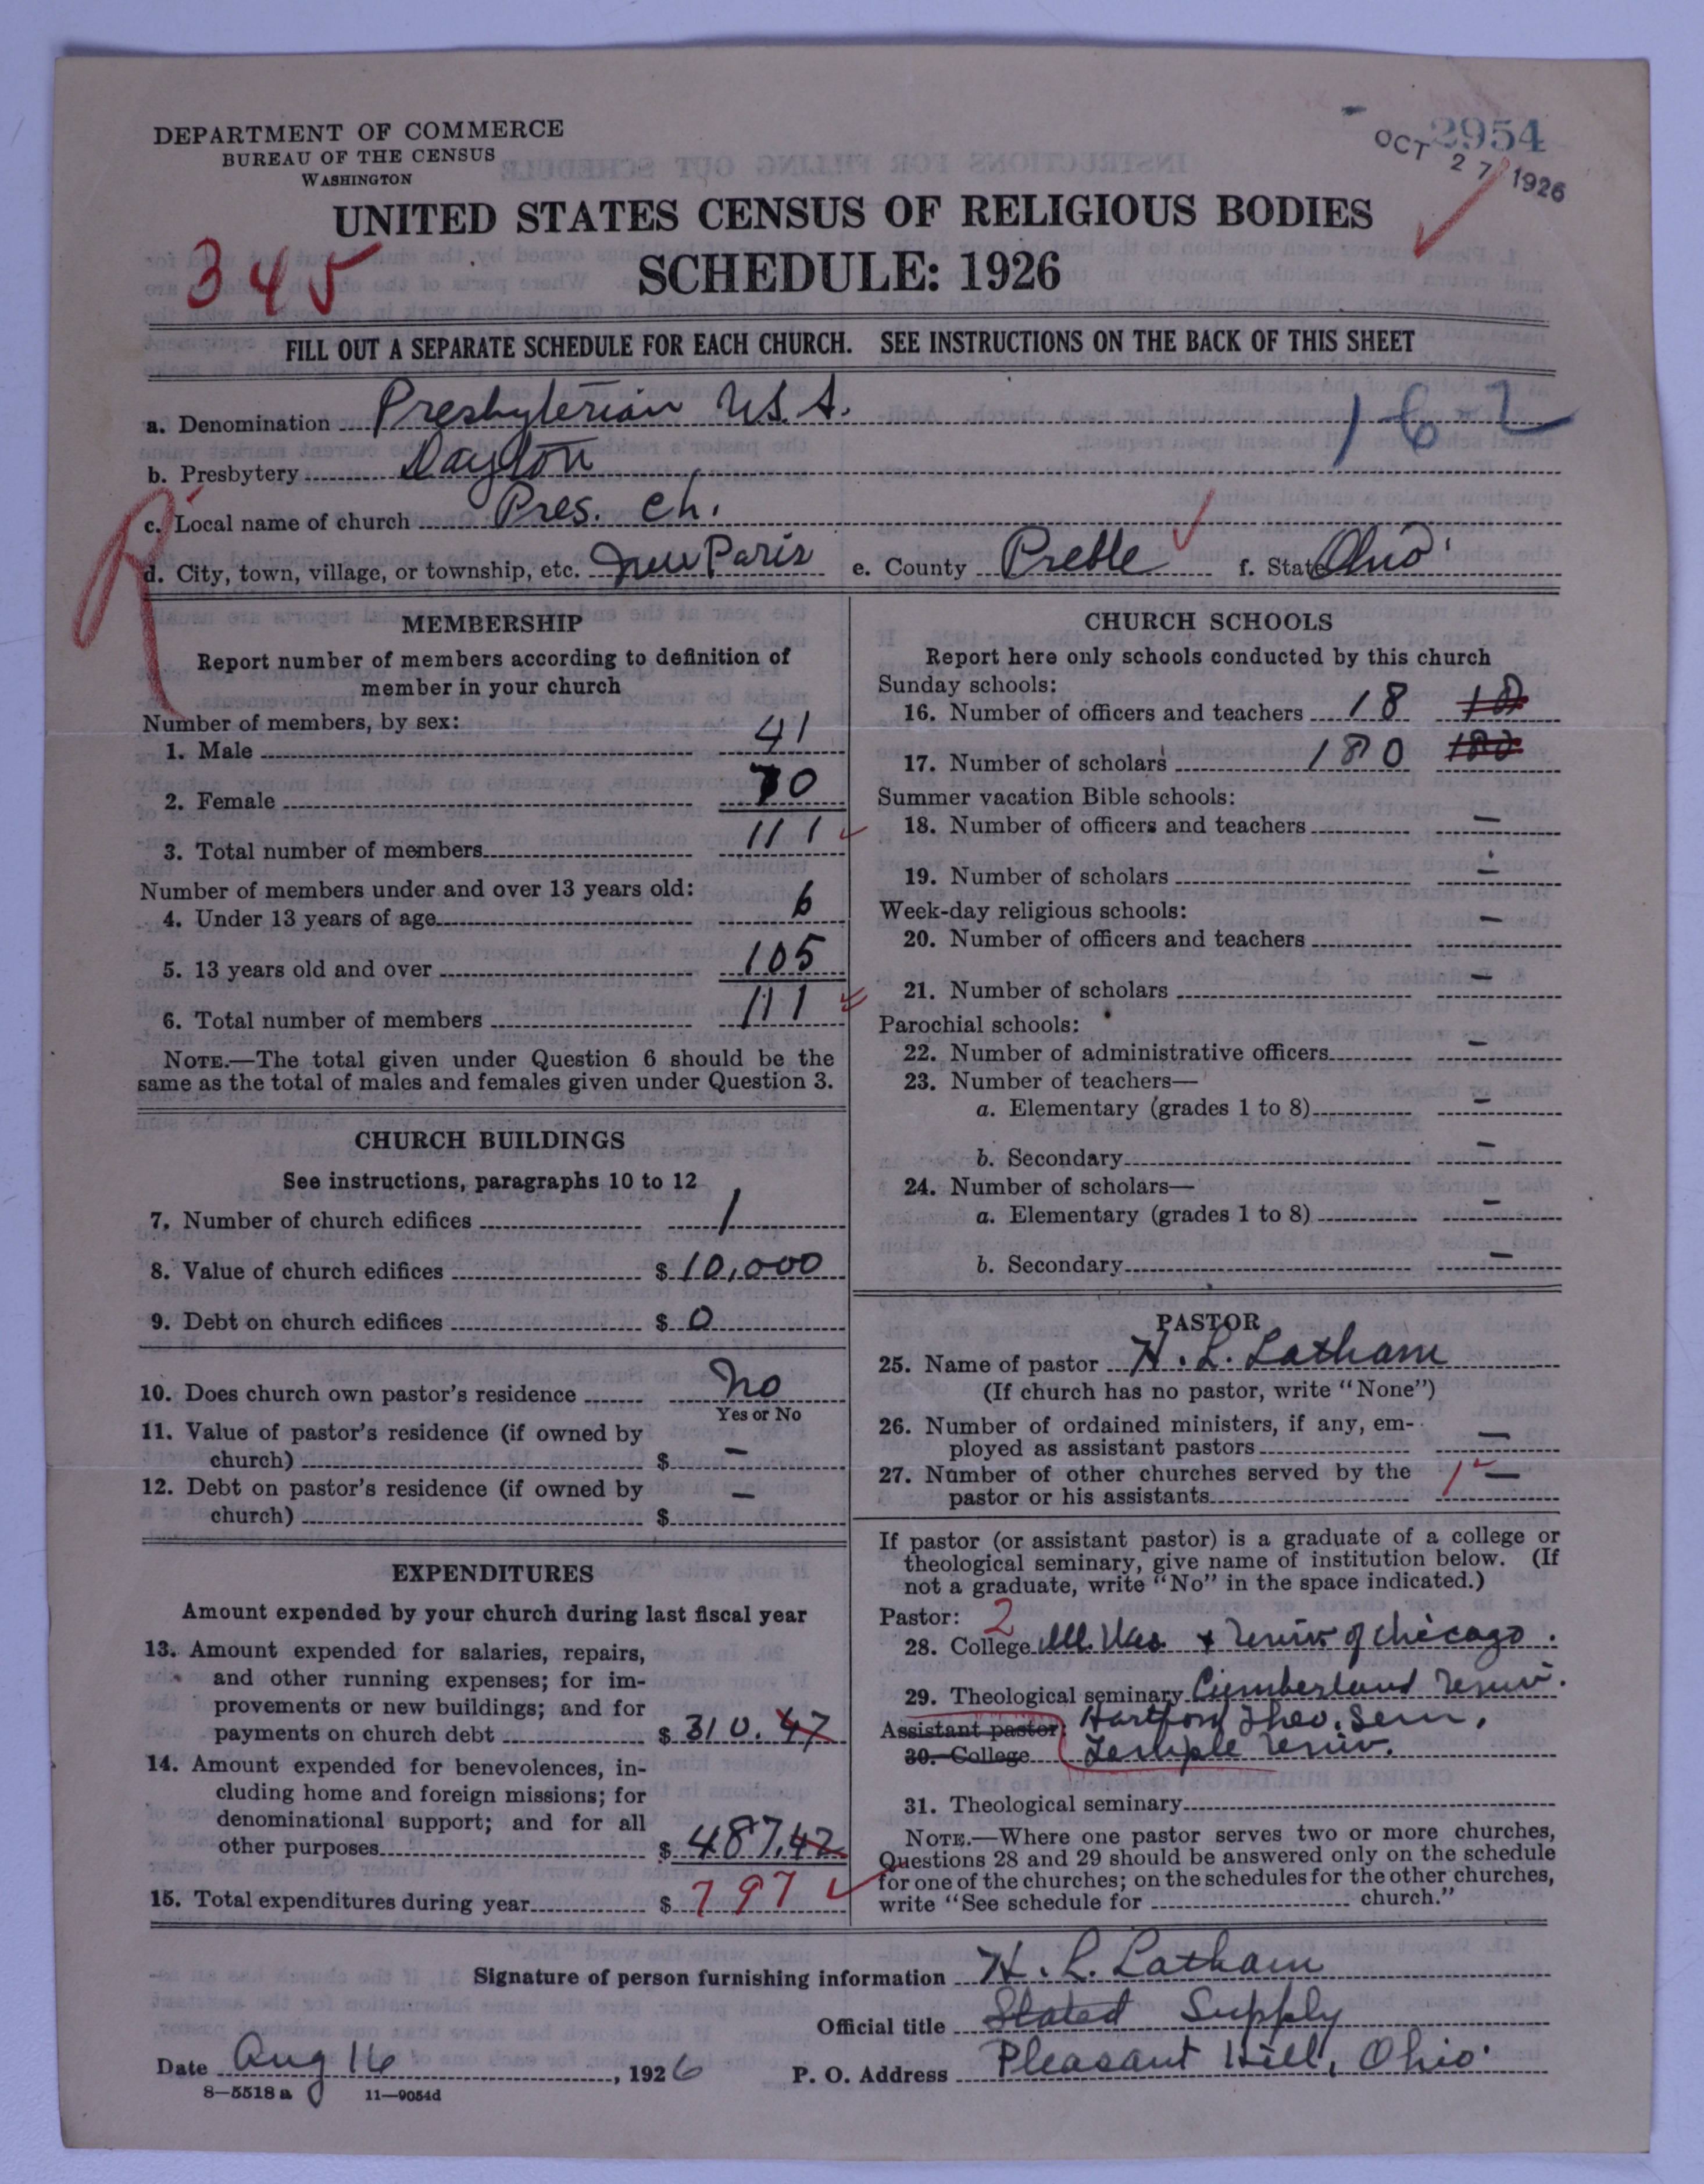 DEPARTMENT OF COMMERCE
BUREAU OF THE CENSUS
WASHINGTON
2954
OCT 27 1926
UNITED STATES CENSUS OF RELIGIOUS BODIES
SCHEDULE: 1926
345
FILL OUT A SEPARATE SCHEDULE FOR EACH CHURCH. SEE INSTRUCTIONS ON THE BACK OF THIS SHEET
a. Denomination Presbyterian U.S.A. 162
b. Presbytery Dayton
c. Local name of church Pres. Ch.
R
d. City, town, village, or township, etc. New Paris e. County Preble f. State Ohio
MEMBERSHIP
Report number of members according to definition of
member in your church
Number of members, by sex:
1. Male 41
2. Female 70
3. Total number of members 111
Number of members under and over 13 years old:
4. Under 13 years of age 6
5. 13 years old and over 105
6. Total number of members 111
NOTE.—The total given under Question 6 should be the
same as the total of males and females given under Question 3.
CHURCH BUILDINGS
See instructions, paragraphs 10 to 12
7. Number of church edifices 1
8. Value of church edifices $ 10,000
9. Debt on church edifices $ 0
10. Does church own pastor's residence No
Yes or No
11. Value of pastor's residence (if owned by
church) $ –
12. Debt on pastor's residence (if owned by
church) $ –
EXPENDITURES
Amount expended by your church during last fiscal year
13. Amount expended for salaries, repairs,
and other running expenses; for im-
provements or new buildings; and for
payments on church debt $ 310.47
14. Amount expended for benevolences, in-
cluding home and foreign missions; for
denominational support; and for all
other purposes $ 487.42
15. Total expenditures during year $ 797
CHURCH SCHOOLS
Report here only schools conducted by this church
Sunday schools:
16. Number of officers and teachers 18 18
17. Number of scholars 180 180
Summer vacation Bible schools:
18. Number of officers and teachers –
19. Number of scholars –
Week-day religious schools:
20. Number of officers and teachers –
21. Number of scholars –
Parochial schools:
22. Number of administrative officers –
23. Number of teachers—
a. Elementary (grades 1 to 8) –
b. Secondary –
24. Number of scholars—
a. Elementary (grades 1 to 8) –
b. Secondary –
PASTOR
25. Name of pastor H. L. Latham
(If church has no pastor, write "None")
26. Number of ordained ministers, if any, em-
ployed as assistant pastors –
27. Number of other churches served by the
pastor or his assistants 1 –
If pastor (or assistant pastor) is a graduate of a college or
theological seminary, give name of institution below. (If
not a graduate, write "No" in the space indicated.)
Pastor: 2
28. College Ill. Wes. + Univ of Chicago.
29. Theological seminary Cumberland Univ.
Assistant pastor: Hartford Theo. Sem.
30. College Temple Univ.
31. Theological seminary
NOTE.—Where one pastor serves two or more churches,
Questions 28 and 29 should be answered only on the schedule
for one of the churches; on the schedules for the other churches,
write "See schedule for church."
Signature of person furnishing information H. L. Latham
Official title Stated Supply
Date Aug 16, 1926 P. O. Address Pleasant Hill, Ohio.
8—5518 a 11—9054d